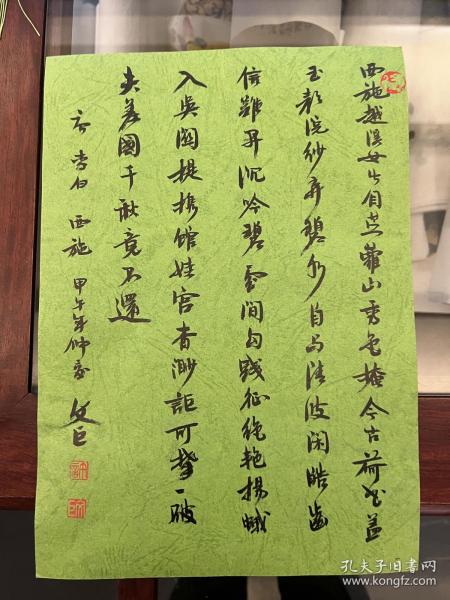 西施越溪女出自苎蘿山秀色掩今古荷花羞
玉颜浣纱弄碧水自与清波闲皓齿
信難开沉吟碧雲间勾践征绝艳揚蛾
入吴関提携馆娃宫杳渺詎可攀一破
夫差國千秋竟不還
李白 西施 甲午年
孔夫子旧书网
www.kongfz.com